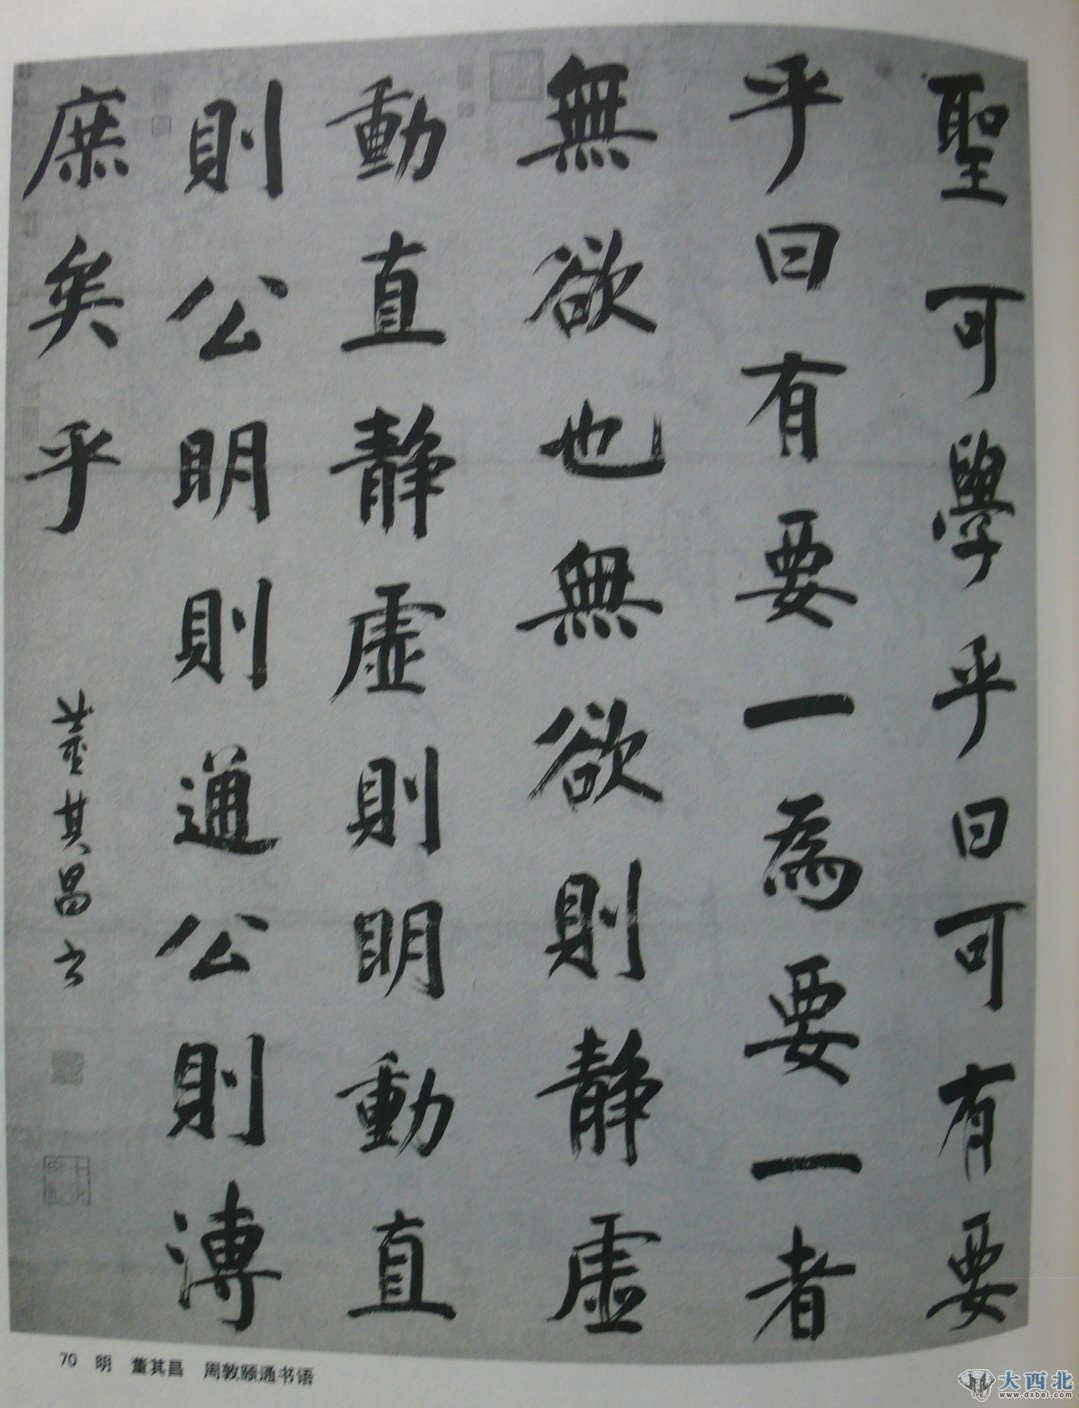 聖可學乎曰可有要
乎曰有要一為要一者
無欲也無欲則静虛
動直静虛則明動直
則公明則通公則溥
庶矣乎
董其昌书
70 明 董其昌 周敦颐通书语
大西北
www.dxbei.com